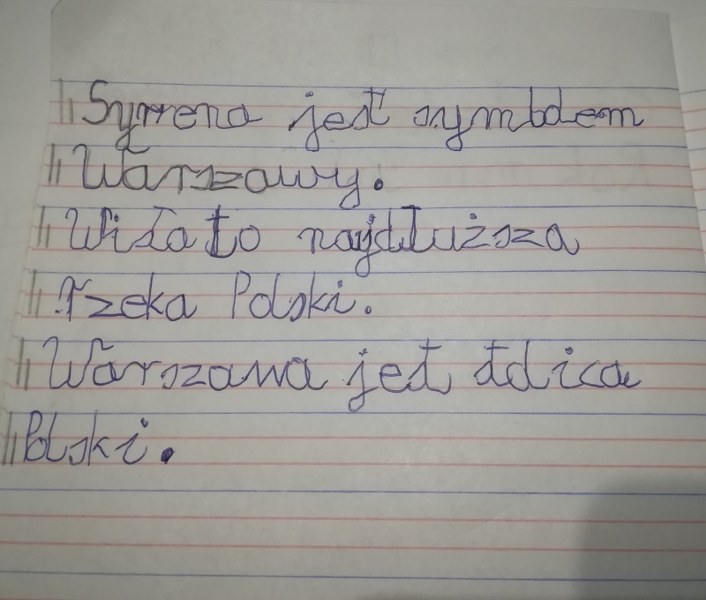 Syrrena jest symbolem
Warszawy.
Wisła to najdłuższa
rzeka Polski.
Warszawa jest stolica
Polski.